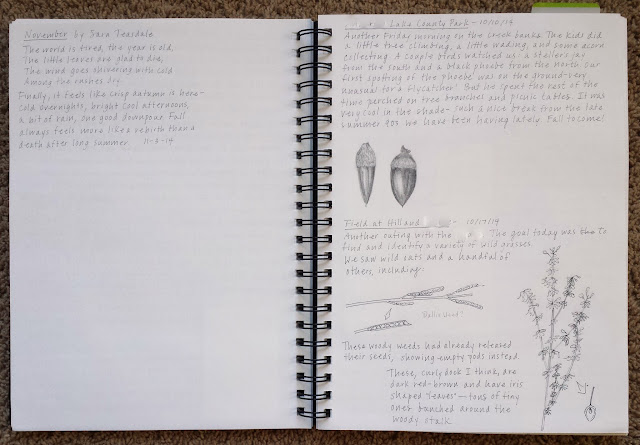 November by Sara Teasdale
The world is tired, the year is old,
The little leaves are glad to die,
The wind goes shivering with cold
Among the rushes dry.
Finally, it feels like crisp autumn is here-
cold overnights, bright cool afternoons,
a bit of rain, one good downpour. Fall
always feels more like a rebirth than a
death after long summer. 11-3-14
Lake County Park - 10/10/14
Another Friday morning on the creek banks. The kids did
a little tree climbing, a little wading, and some acorn
collecting. A couple birds watched us: a stellers jay
from the south and a black phoebe from the north. Our
first spotting of the phoebe was on the ground-very
unusual for a flycatcher! But he spent the rest of the
time perched on tree branches and picnic tables. It was
very cool in the shade- such a nice break from the late
summer 90s we have been having lately. Fall to come!
Field at Hill and - 10/17/14
Another outing with the The goal today was to
find and identify a variety of wild grasses.
We saw wild oats and a handful of
others, including:
These woody weeds had already released
their seeds, showing empty pods instead.
These, curly dock I think, are
dark red-brown and have iris
shaped "leaves" - tons of tiny
ones bunched around the
woody stalk.